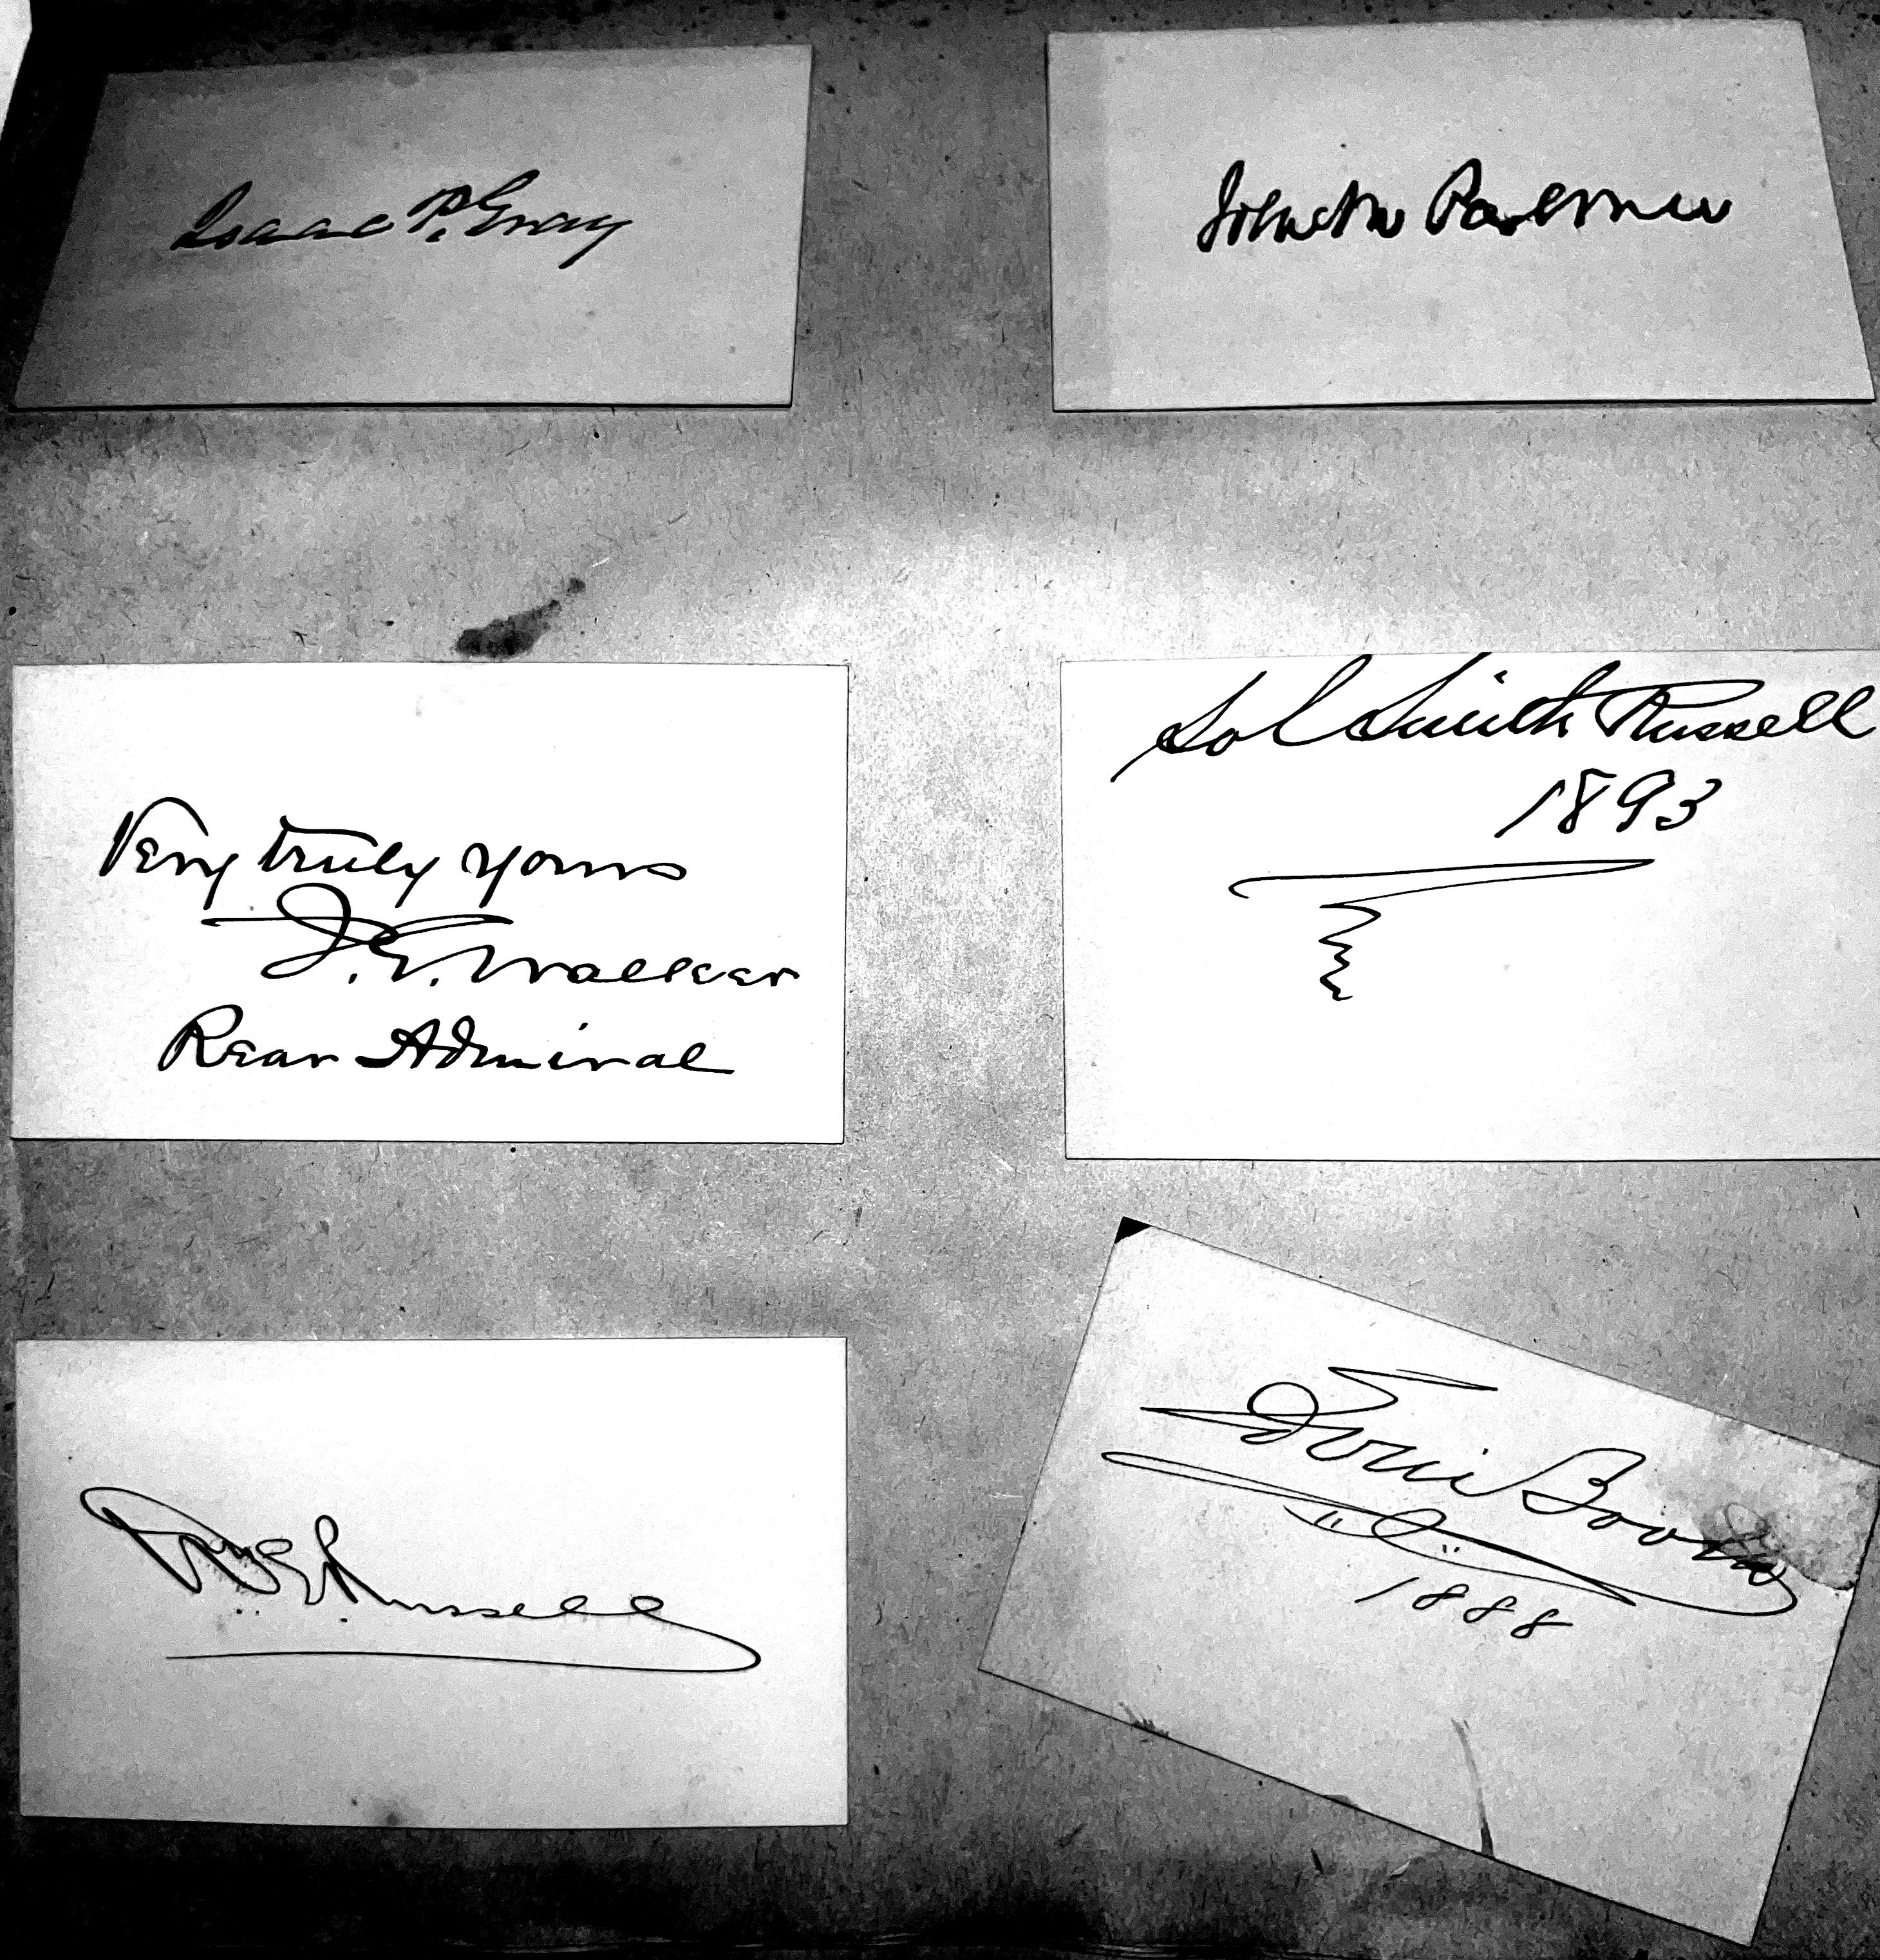 Isaac P. Gray
Palmer
Very truly yours
J. G. Walker
Rear Admiral
Sol Smith Russell
1893
Russell
Edwin Booth
1888